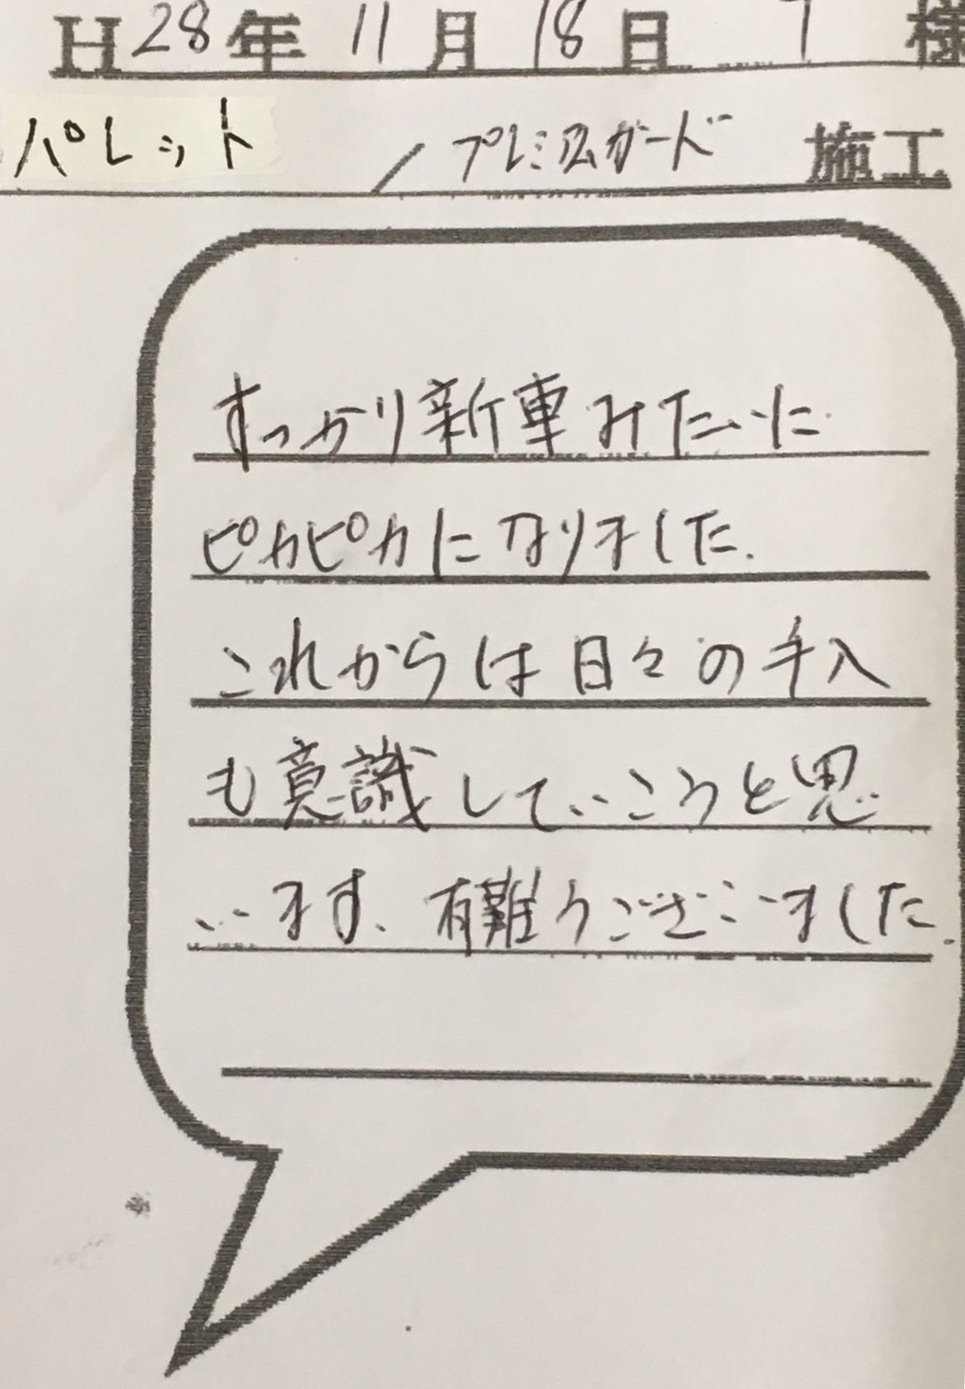 H28年 11月 18日 T 様
パレット / プレミアムガード 施工
すっかり新車みたいに
ピカピカになりました.
これからは日々の手入
も意識していこうと思
います、有難うございました.